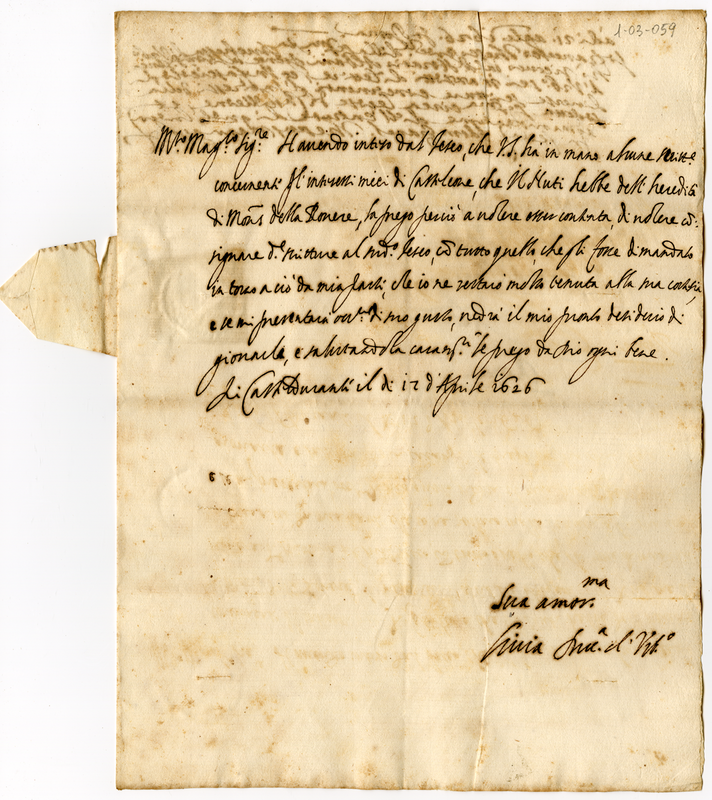 1-03-059
M.to Mag.co Sig.re Havendo inteso dal Teseo, che V.S. hà in mano alcune scritt.e
concernenti gl'interessi miei di Castelleone, che il Muti hebbe dell'heredità
di Mons.r della Rovere, la prego perciò a volere esser contenta, di volere cō-
signare d.e scritture al sud.o Teseo, cō tutto quello, che gli fosse dimandato
intorno a ciò da mia parte, che io ne restarò molto tenuta alla sua cortesia,
e se mi presentarà occ.ne di suo gusto, vedrà il mio pronto desiderio di
giovarle, e salutandola caram.te le prego da Dio ogni bene.
Di Casteldurante il dì 12 d'Aprile 1626
Sua amor.ma
Livia Duc.a d'Urb.o